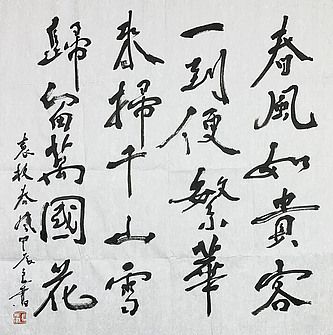 春風如貴客
一到便繁華
來掃千山雪
歸留萬國花
袁枚春風甲辰立書